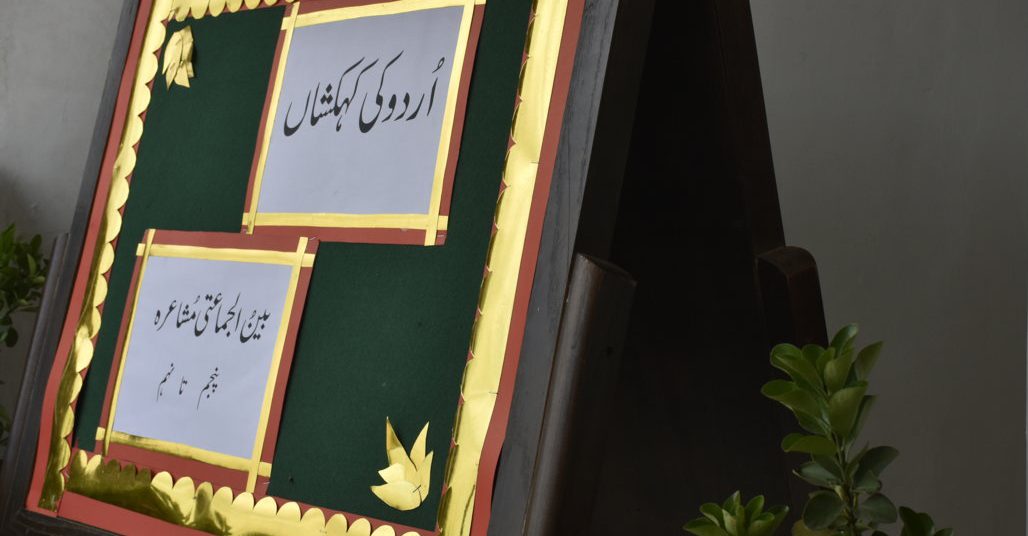 اُردو کی کہکشاں
بینُ الجماعتی مُشاعرہ
پنجم تا نہم